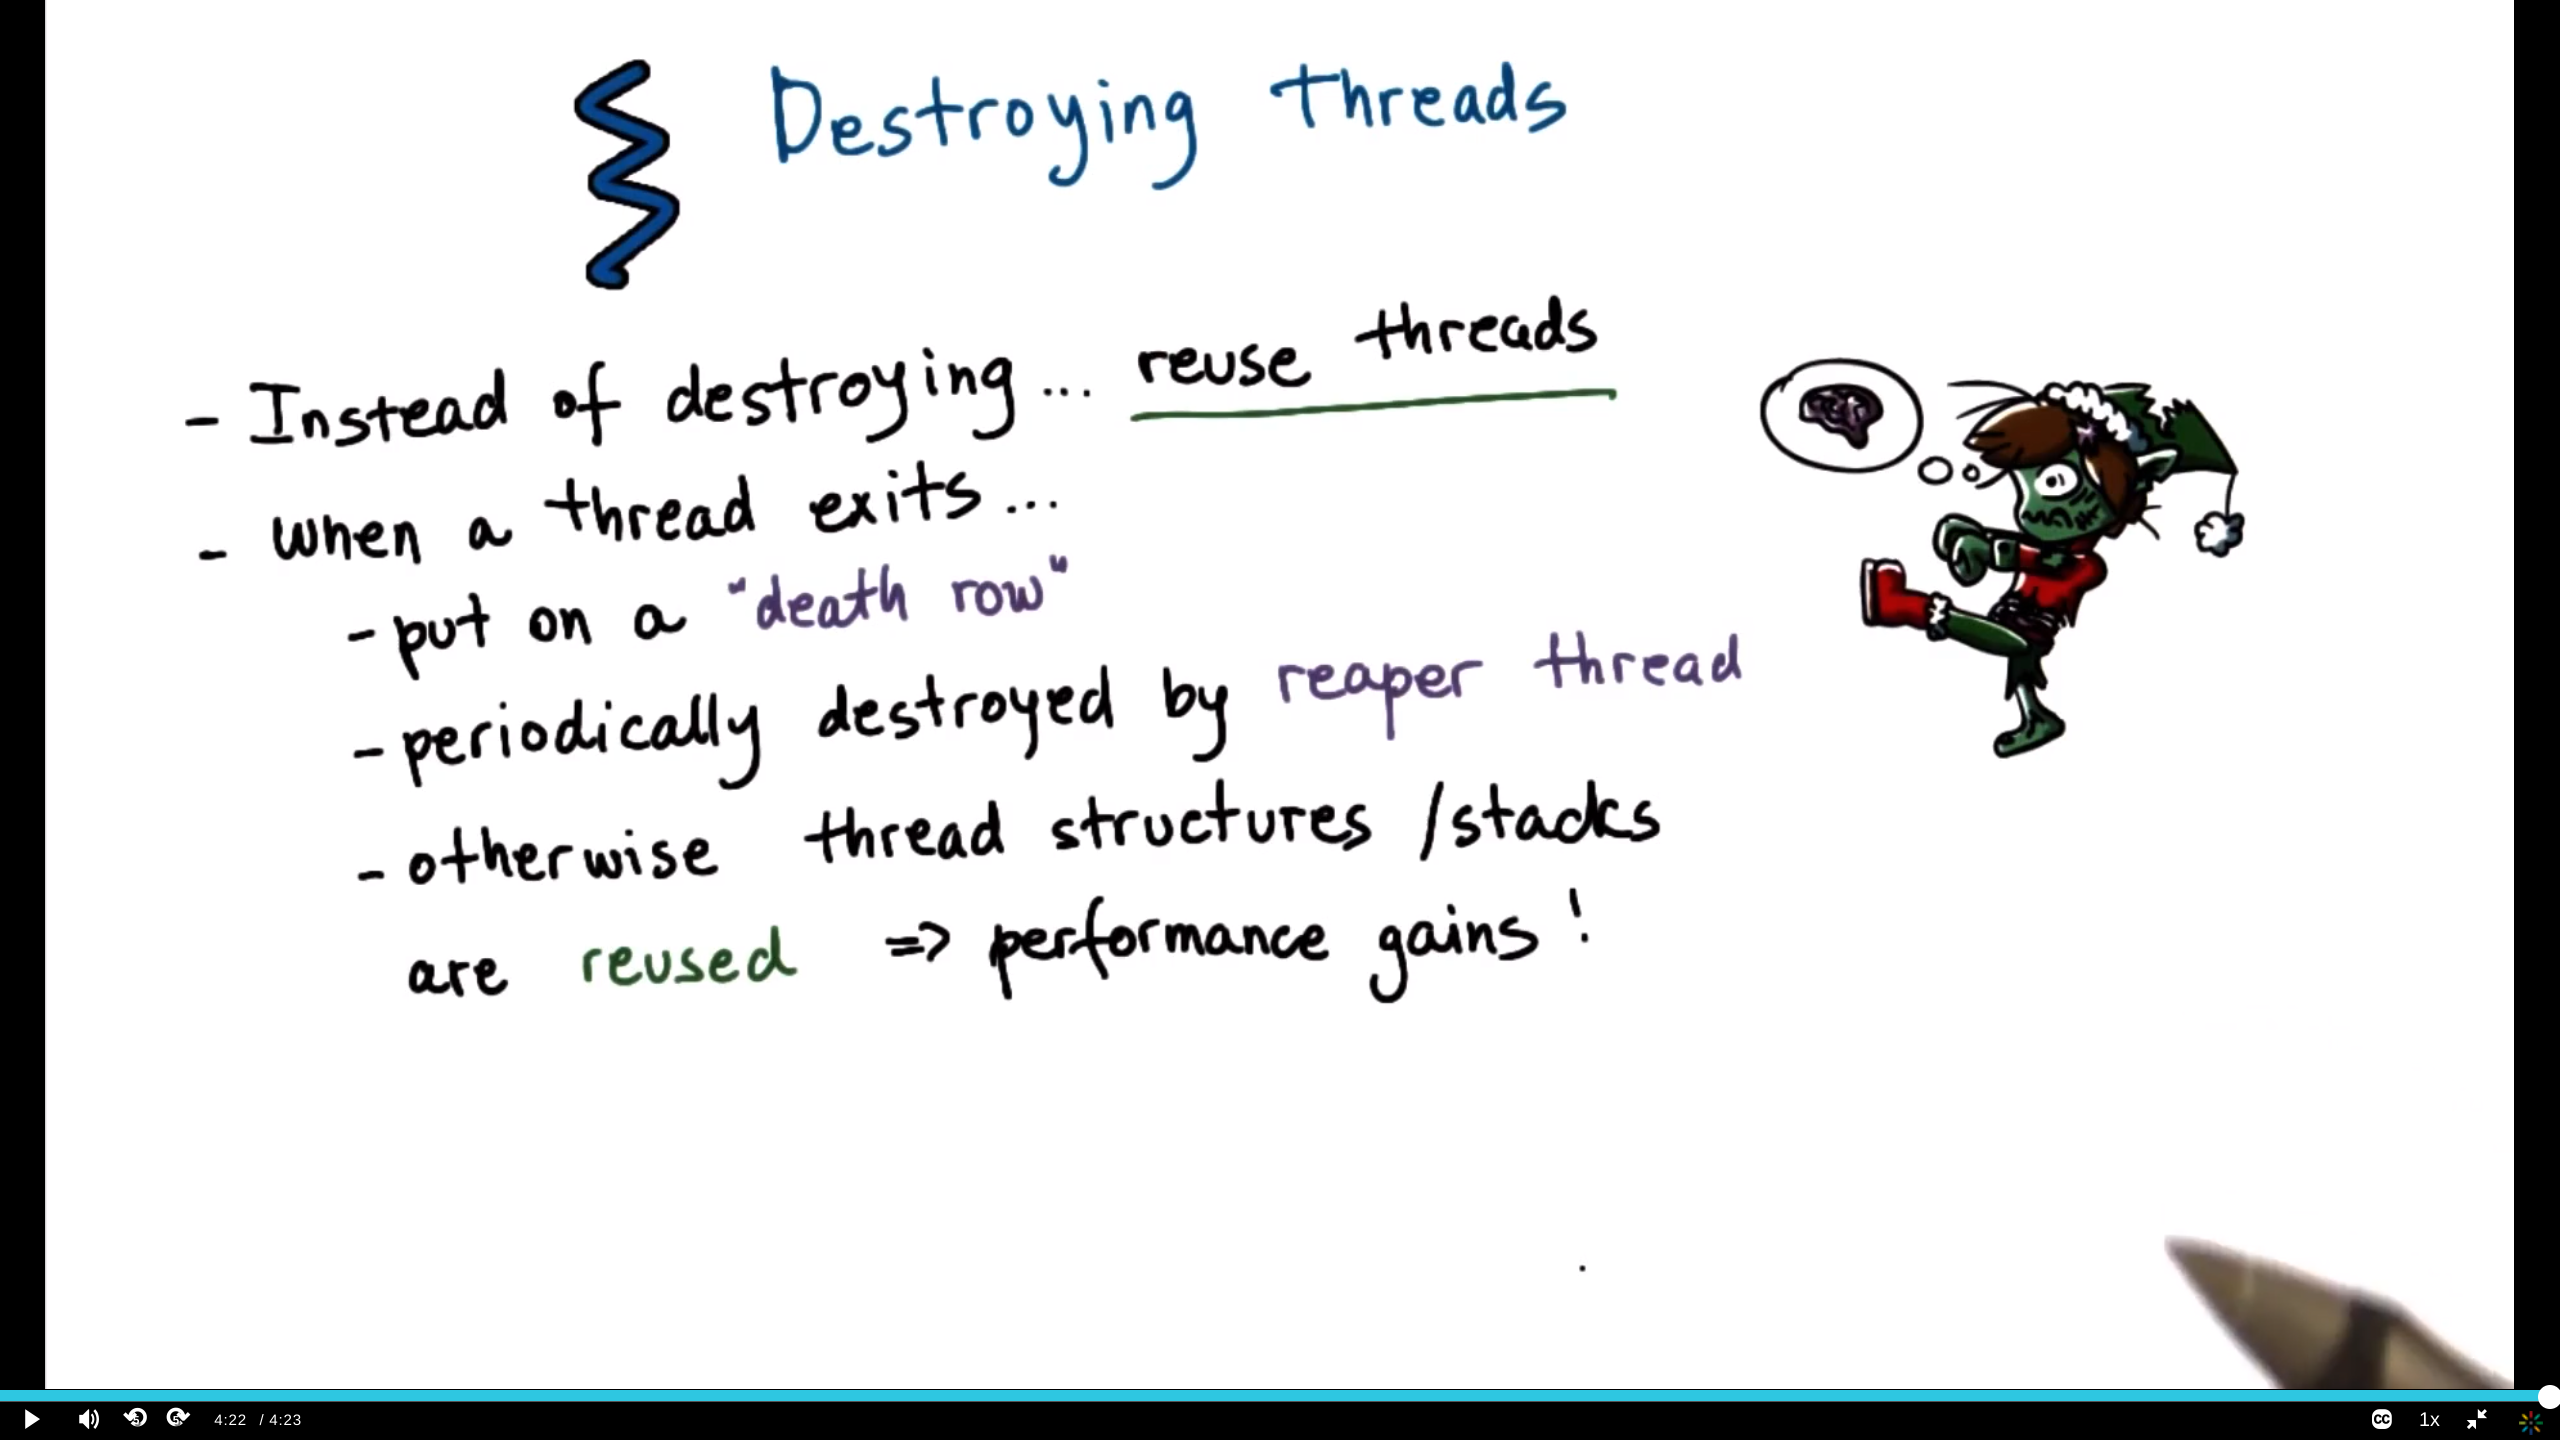 Destroying Threads
- Instead of destroying... reuse threads
- When a thread exits...
- put on a "death row"
- periodically destroyed by reaper thread
- otherwise thread structures /stacks
are reused => performance gains!
4:22 / 4:23
CC
1x